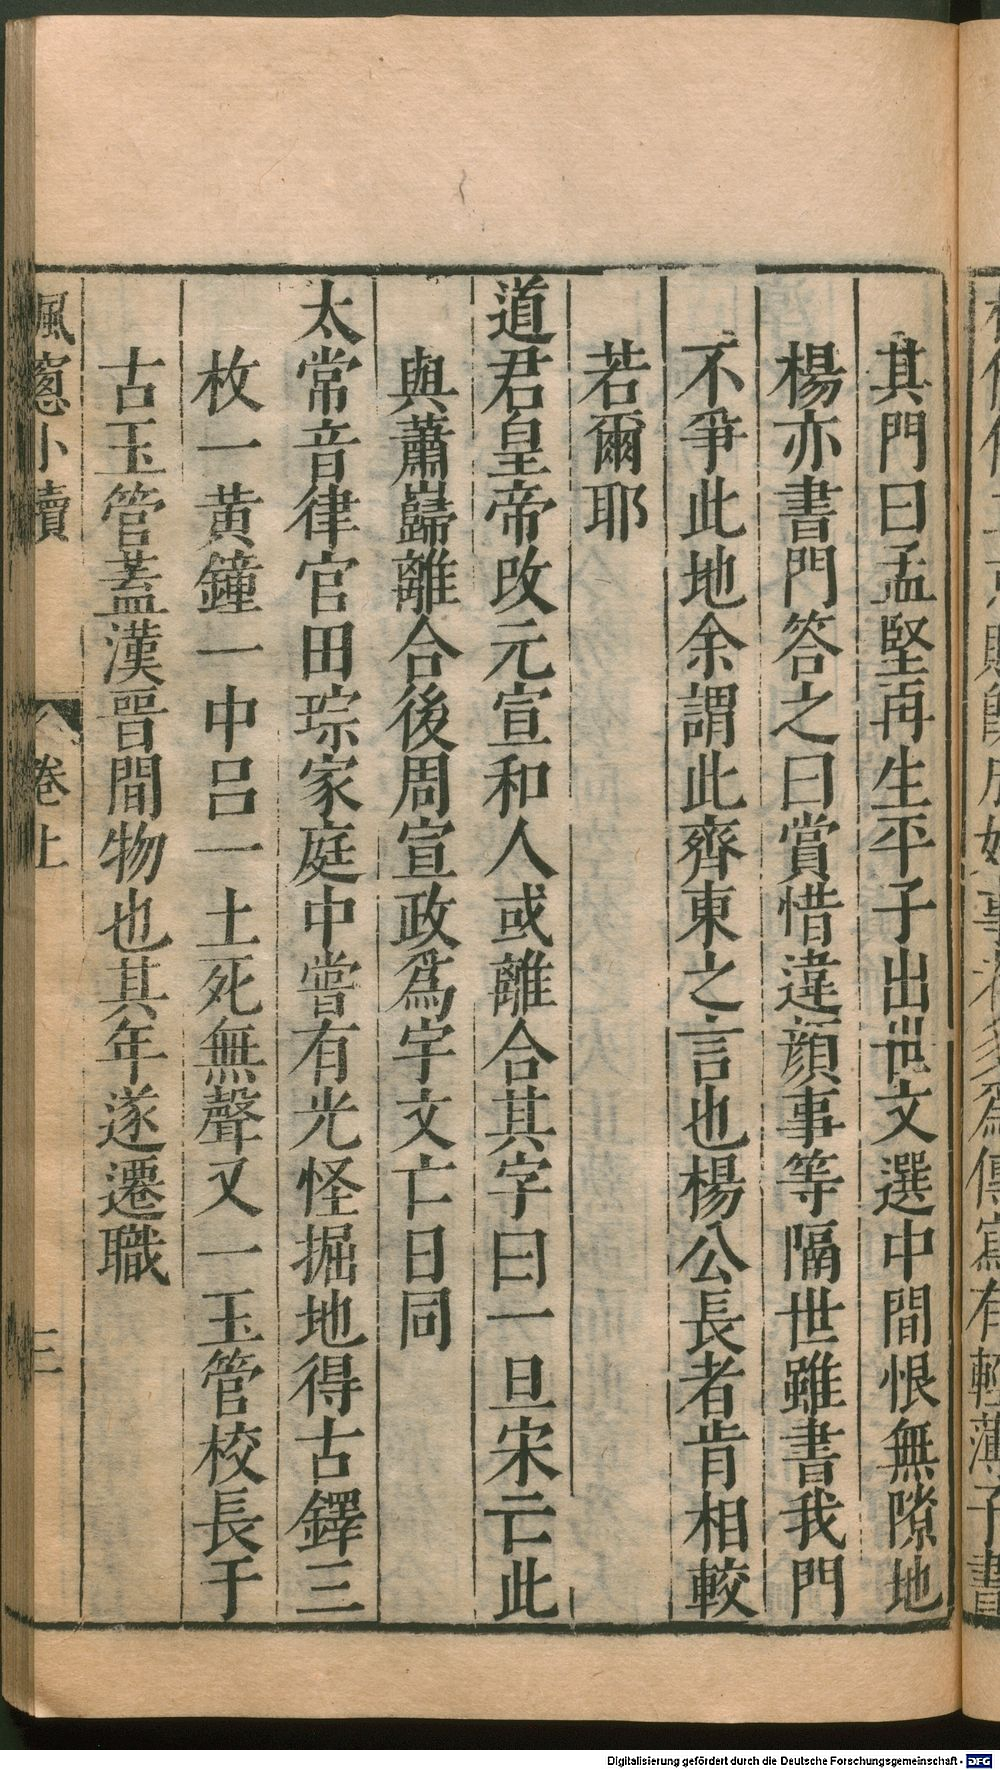 其門曰孟堅再生平子出世文選中間恨無隙地
楊亦書門答之曰賞惜違顔事等隔世雖書我門
不爭此地余謂此齊東之言也楊公長者肯相較
若爾耶
道君皇帝改元宣和人或離合其字曰一旦宋亡此
與蕭巋離合後周宣政爲宇文亡日同
太常音律官田琮家庭中嘗有光怪掘地得古鐸三
枚一黃鐘一中呂一土死無聲又一玉管校長于
古玉管蓋漢晉間物也其年遂遷職
楓窻小牘
卷上
三
Digitalisierung gefördert durch die Deutsche Forschungsgemeinschaft - DFG